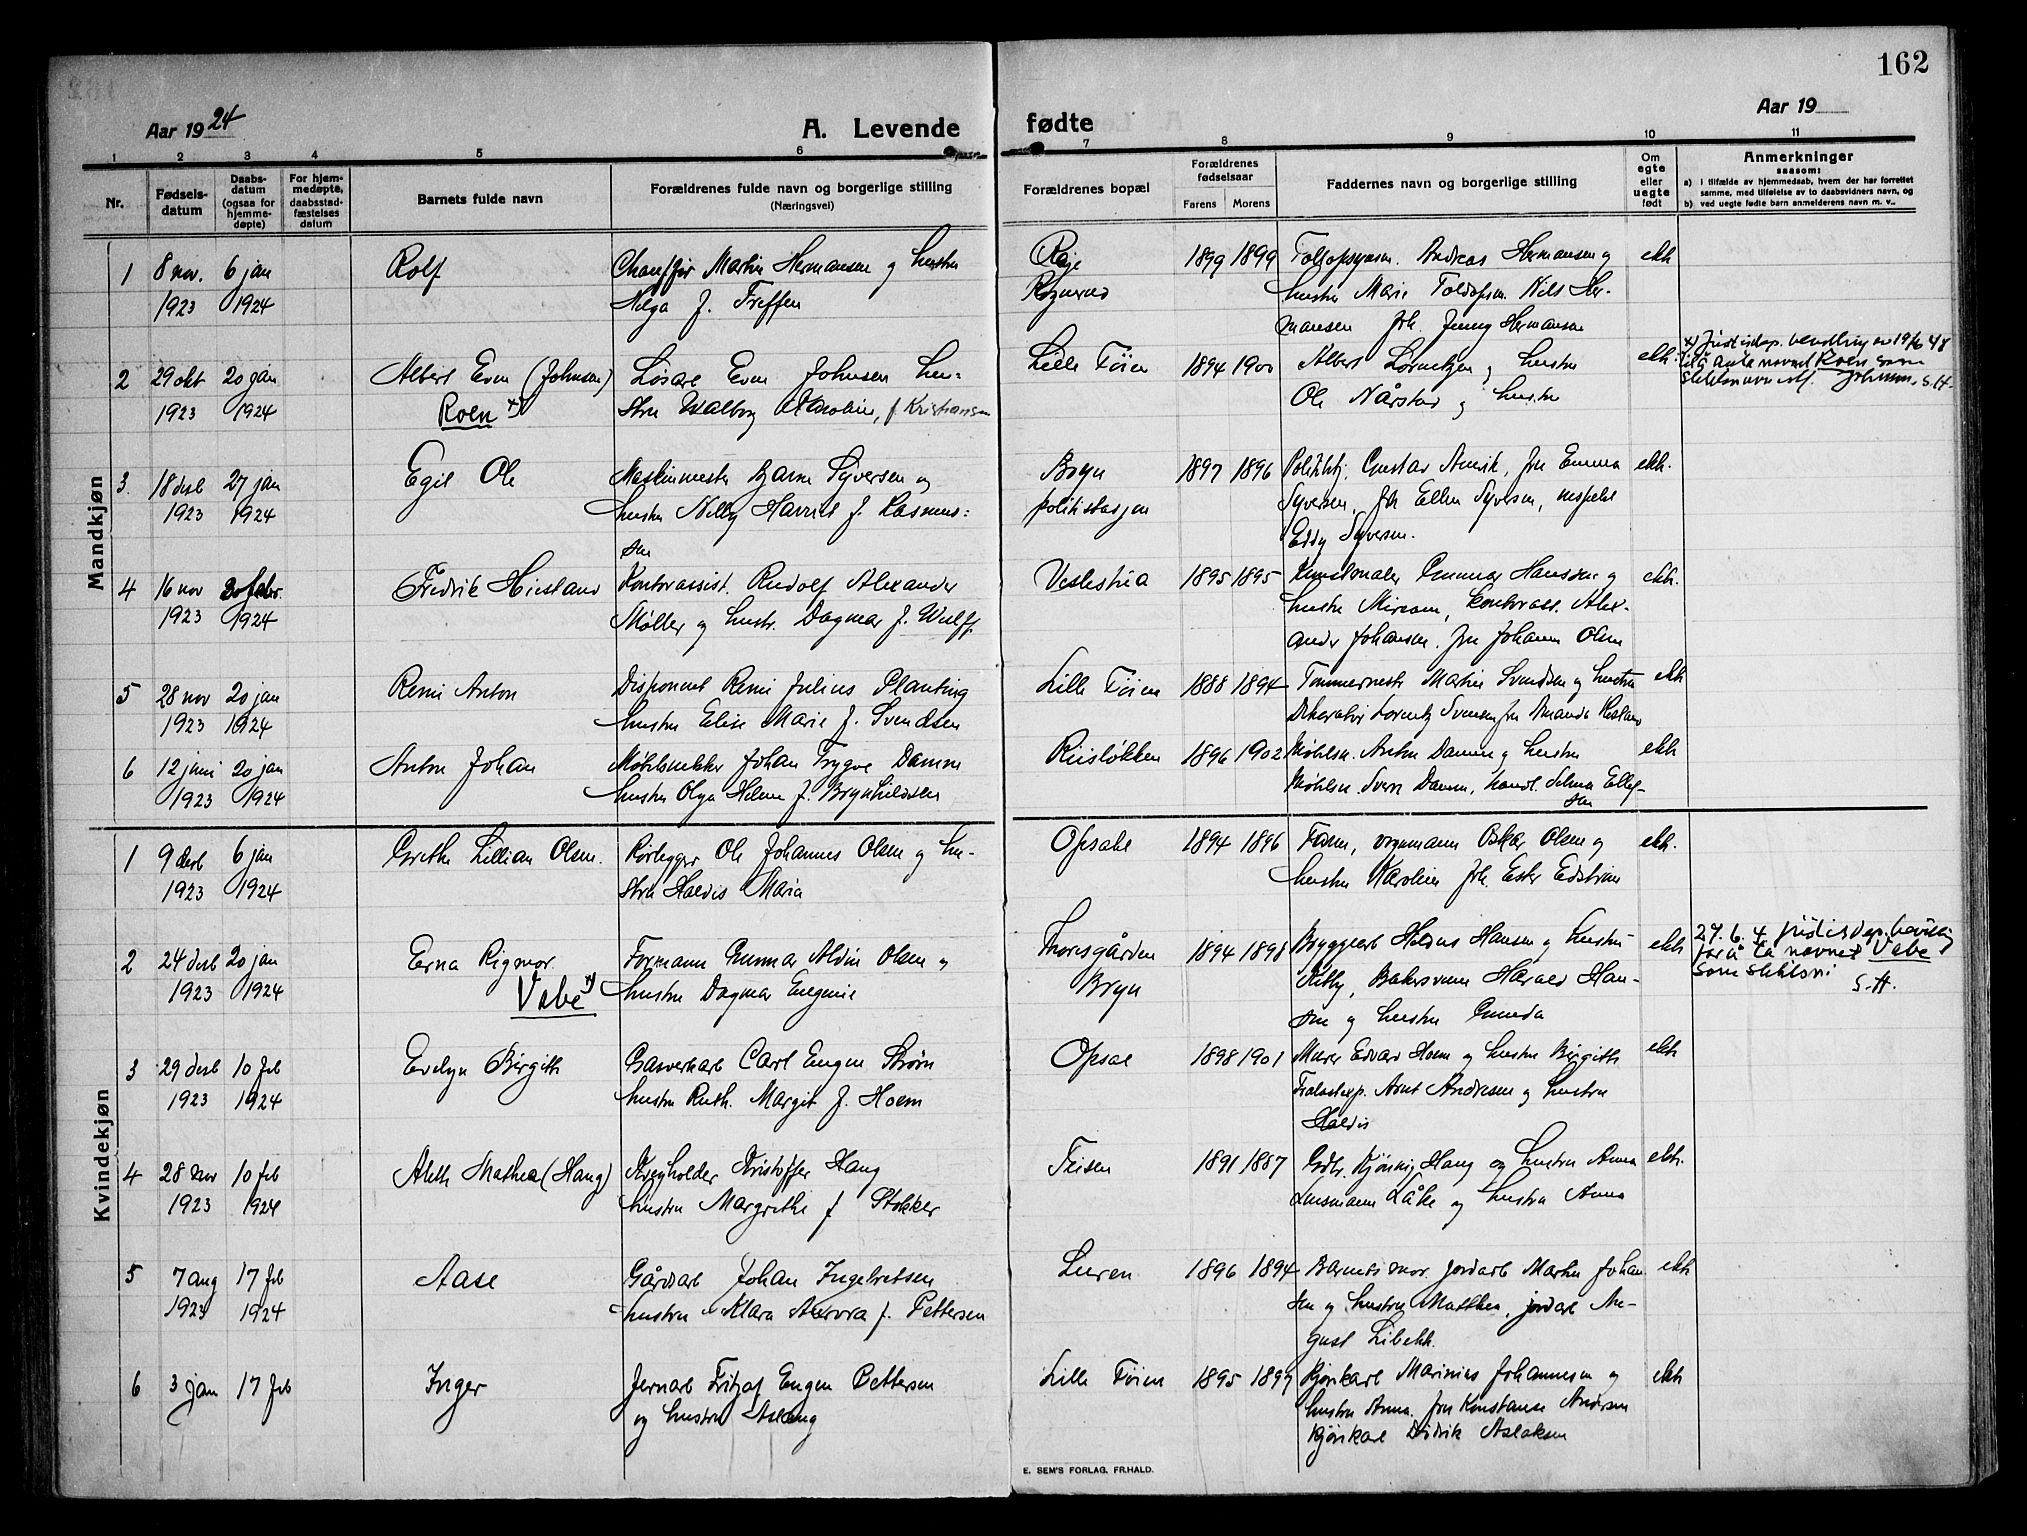 162
Aar 1924
A. Levende
fødte
Aar 19
1 2 3 4 5 6 7 8 9 10 11
Nr.
Fødsels-
datum
Daabs-
datum
(ogsaa for
hjemme-
døpte)
For hjem-
medøpte,
daabsstad-
fæstelses
datum
Barnets fulde navn
Forældrenes fulde navn og borgerlige stilling
(Næringsvei)
Forældrenes bopæl
Forældrenes
fødselsaar
Farens Morens
Faddernes navn og borgerlige stilling
Om
egte
eller
uegte
født
Anmerkninger
saasom:
a) I tilfælde av hjemmedaab, hvem der har forrettet
samme, med tilføielse av to daabsvidners navn, og
b) ved uegte fødte barn anmelderens navn m. v..
Mandkjøn
1 8 nov. 6 jan Rolf Chauffør Martin Hermansen og hustru 1899 1899 Andreas Hermansen og ekt
1923 1924 Helga f. Treffen hustru Marie Nils Her-
mansen frk. Jenny Hermansen
2 29 okt 20 jan Albert Even (Johnsen) Løsarb Even Johnsen hu- Lille Tøien 1894 1900 Albert og hustru ekt.
1923 1924 Roen x) stru Walborg f Kristiansen Ole Nårstad og hustru
navnet Roen som
S.H.
3. 18 desb 27 jan Egil Ole Maskinmester Bjarne Syversen og Bryn 1897 1896 Gustav fru Emma ekt.
1923 1924 hustru Nelly Harriet f. Rasmus- politistasjon Syversen, frk Ellen Syversen,
sen Eddy Syversen.
4 16 nov Fredrik Kontorassist. Rudolf Alexander Veslestua 1895 1895 Kunstmaler Gunnar Hanssen og ekt.
1923 1924 Møller og hustr. Dagmar f. Wulff. hustru Miriam, kontorass. Alex-
ander Johansen, fru Johanne Olsen
5 28 nov 20 jan Remi Anton Disponent Remi Julius Planting Lille Tøien 1888 1894 Tømmermester Martin Svendsen og hustru ekt
1923 1924 hustru Elise Marie f. Svendsen Dekoratør Lorentz Svensen fru Amanda
6 12 juni 20 jan Anton Johan Møbelsnekker Johan Trygve Damm Riisløkken 1896 1902 Møbelsn. Anton Damm og hustru ekt
1923 1924 hustru Olga Helene f. Brynhildsen Møbelsn. Sverr Damm, handl. Selma Ellef-
sen
Kvindekjøn
1 9 desb 6 jan Grethe Lillian Olsen. Rørlegger Ole Johannes Olsen og hu- Opsal 1894 1896 Oskar Olsen og ekt.
1923 1924 stru Haldis Maria hustru Karoline frk. Ester Edstrøm
2 24 desb 20 jan Erna Rigmor Formann Gunnar Aldin Olsen og Thoresgården 1894 1898 Bryggearb Hansen og hustru ekt
1923 1924 Vabe x) hustru Dagmar Eugenie Bryn Bakersvenn Harald Han-
sen og hustru Gunda
for å ta navnet Vabe
som slektsnavn
S.H.
3 29 desb 10 feb Evelyn Birgith Gasverkarb Carl Eugen Strøm Opsal 1898 1901 Murer Edvard Hoem og hustru Birgith ekt
1923 1924 hustru Ruth Margit f. Hoem Arnt Andresen og hustru
Haldis
4 28 nov 10 feb Aleth Mathea (Haug) Kristoffer Haug Teisen 1891 1887 Haug og hustru Anna ekt.
1923 1924 hustru Margrethe f Stokker og hustru Anna
5 7 aug 17 feb Aase Gårdarb Johan Ingebretsen Leiren 1896 1894 Barnets mor. jordarb Martin Johan ekt
1923 1924 hustru Klara Aurora f. Pettersen sen og hustru Mathea, jordarb Au-
gust Libekk.
6 3 jan 17 feb Inger Jernarb Fritjof Eugen Pettersen Lille Tøien 1895 1897 Kjørekarl Marinius Johannesen og ekt
og hustru Aslaug hustru Anna. fru Konstanse Andersen
Kjørekarl Didrik Aslaksen
E. SEM'S FORLAG, FR.HALD.